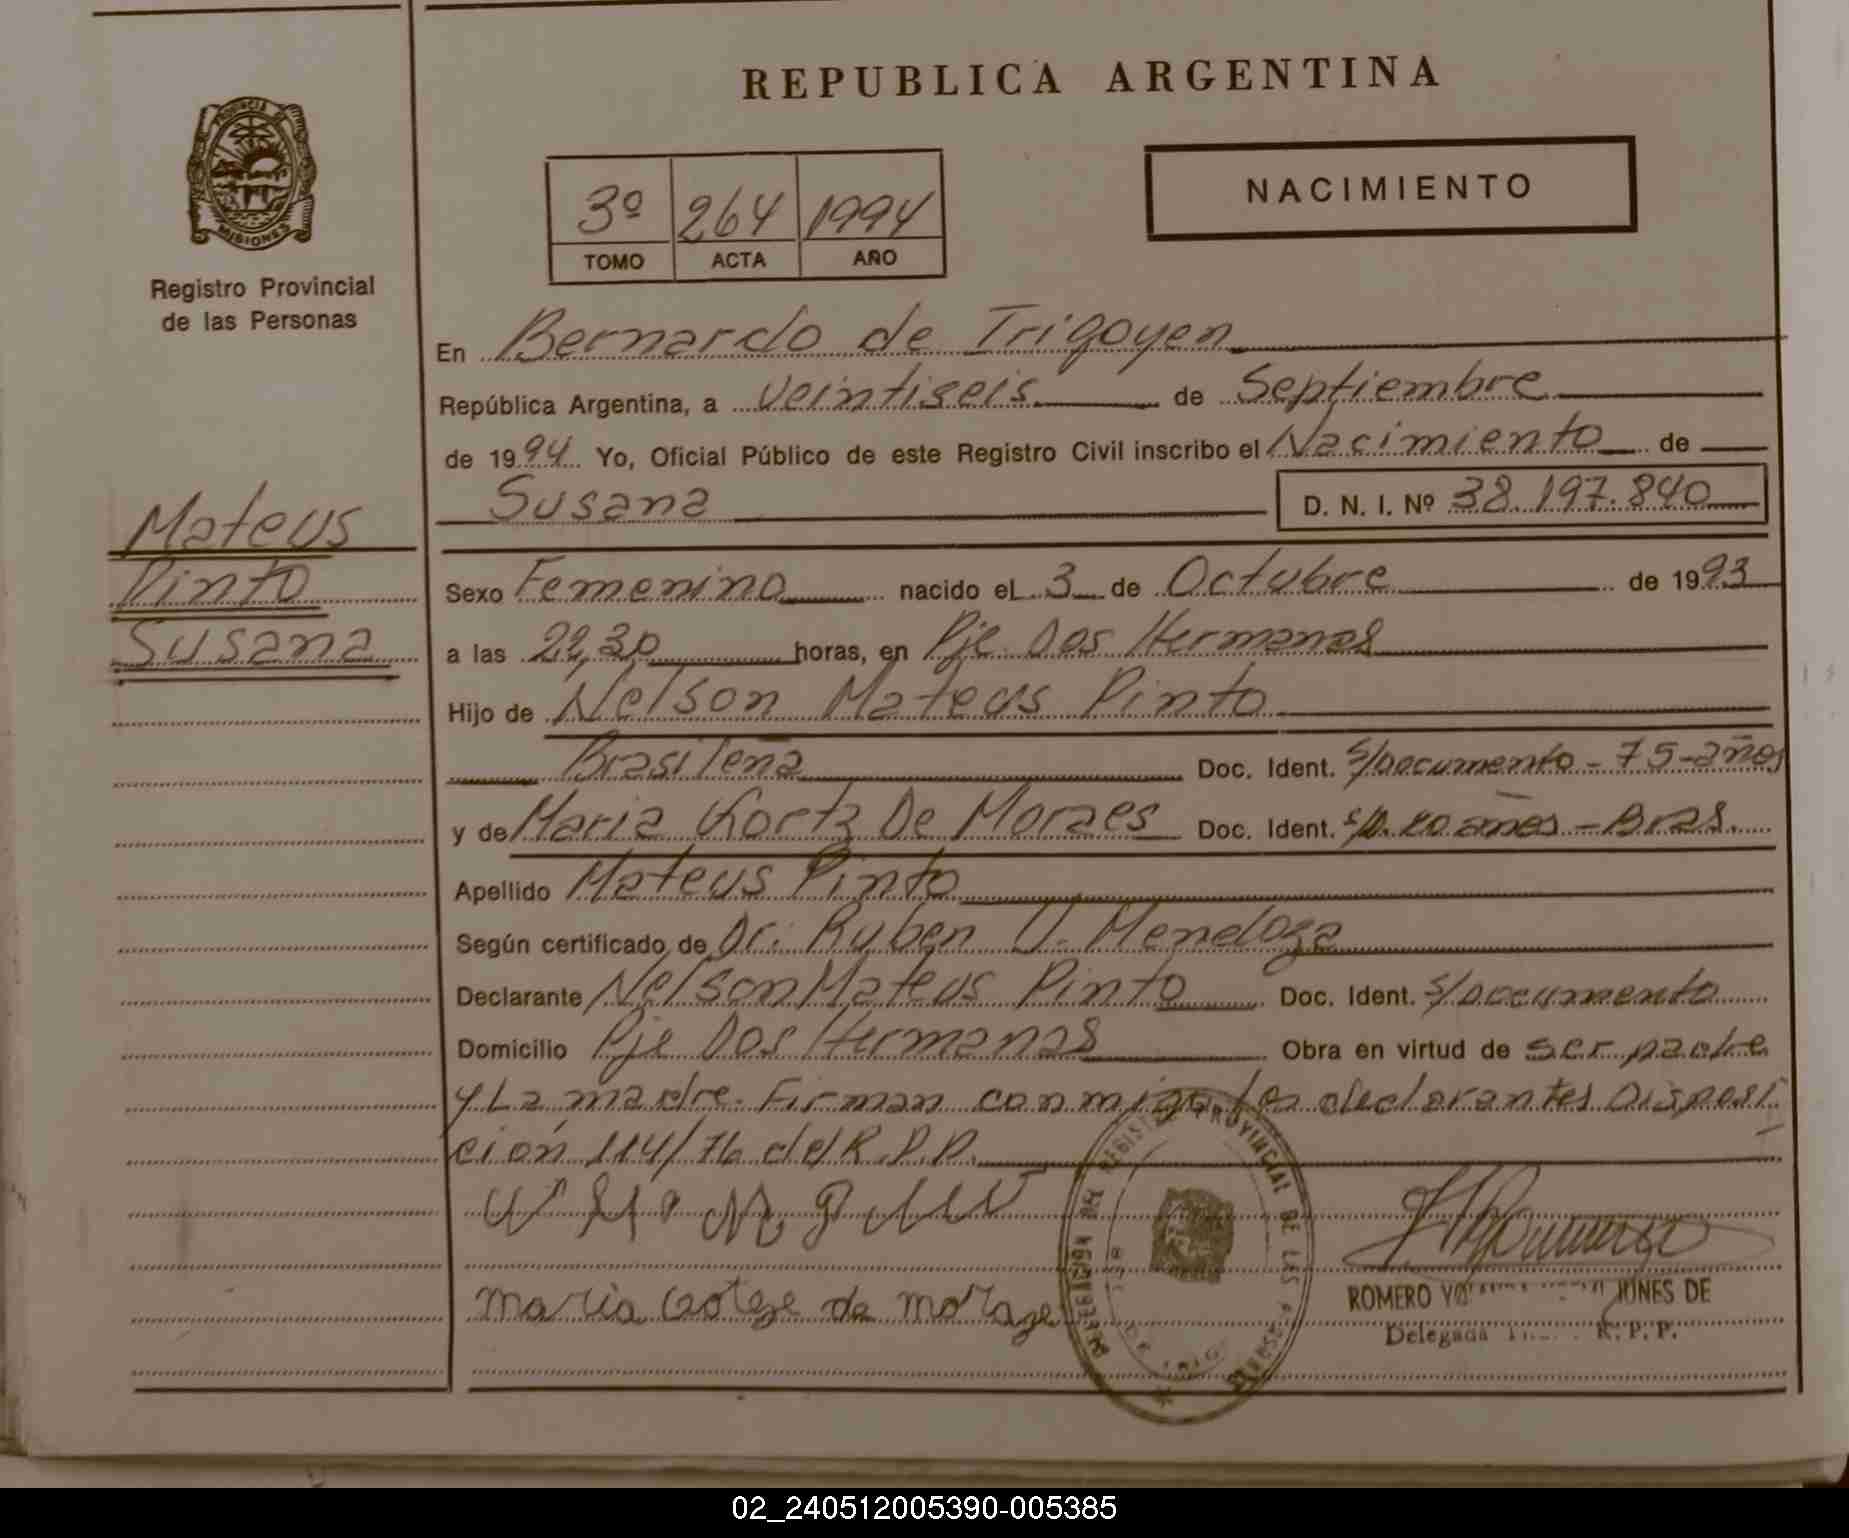 REPUBLICA ARGENTINA
PROVINCIA
MISIONES
Registro Provincial
de las Personas
3º 264 1994
TOMO ACTA AÑO
NACIMIENTO
En Bernardo de Irigoyen
República Argentina, a veintiseis de Septiembre
de 1994 Yo, Oficial Público de este Registro Civil inscribo el Nacimiento de
Susana D. N. I. Nº 38.197.840
Mateus
Pinto
Susana
Sexo Femenino nacido el 3 de Octubre de 1993
a las 22,30 horas, en Pje Dos Hermanas
Hijo de Nelson Mateus Pinto
Brasileña Doc. Ident. S/Documento - 75 - años
y de Maria Gortz De Moraes Doc. Ident. S/D. años - Bras.
Apellido Mateus Pinto
Según certificado de Dr. Ruben U. Mendoza
Declarante Nelson Mateus Pinto Doc. Ident. S/Documento
Domicilio Pje Dos Hermanas Obra en virtud de ser padre
y La madre. Firman conmigo los declarantes Disposi
ción 114/76 del R.P.P.
REGISTRO PROVINCIAL DE LAS PERSONAS
maria de
ROMERO DE
Delegada R. P. P.
02_240512005390-005385